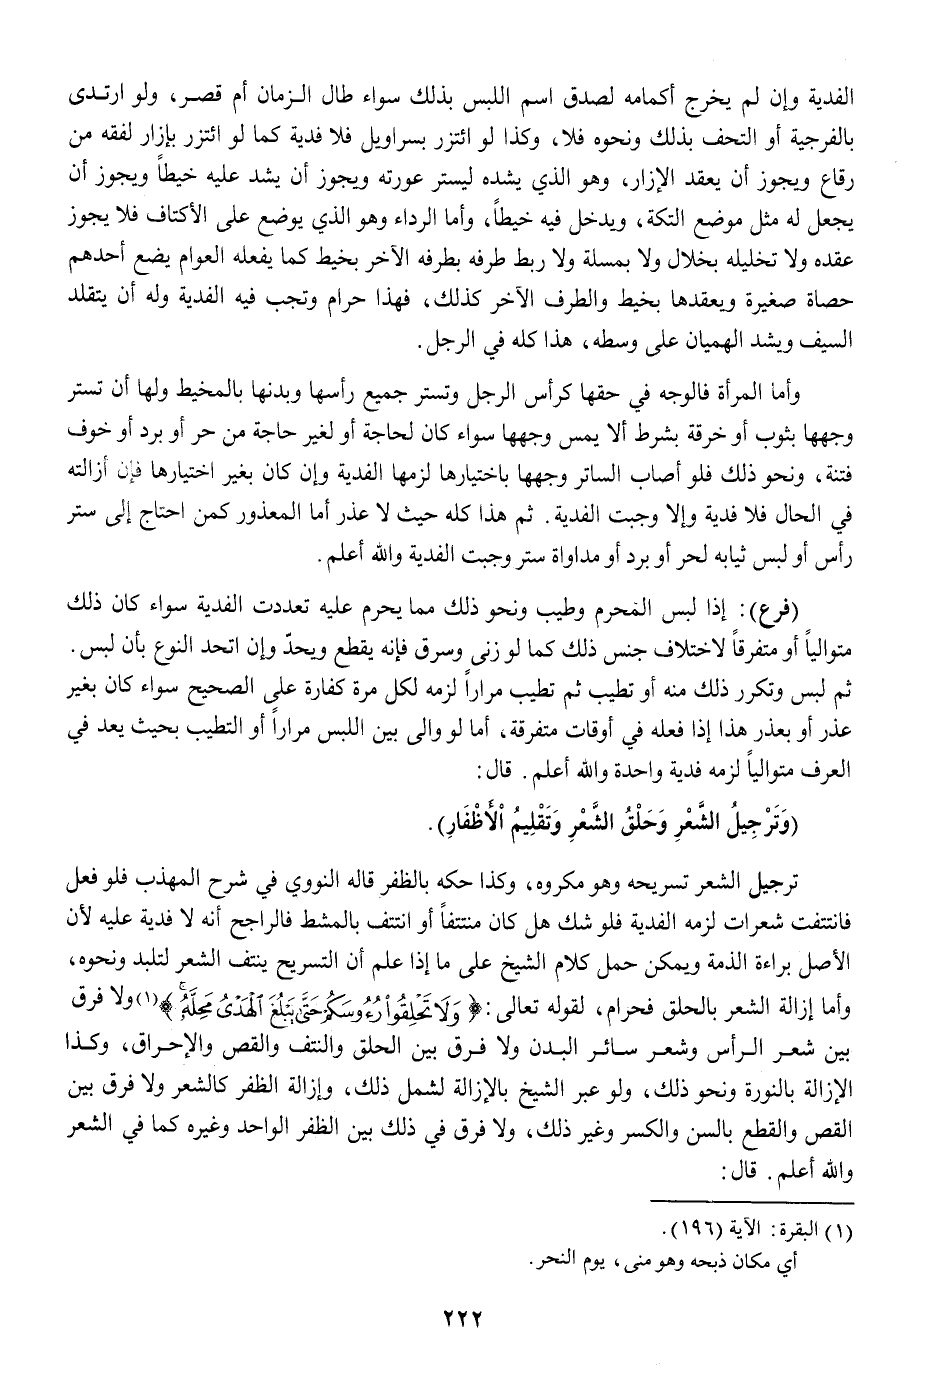 الفدية وإن لم يخرج أكمامه لصدق اسم اللبس بذلك سواء طال الـزمان أم قصـر، ولو ارتـدى
بالفرجية أو التحف بذلك ونحوه فلا، وكذا لو ائتزر بسراويل فلا فدية كما لو ائتزر بإزار لفقه من
رقاع ويجوز أن يعقد الإزار، وهو الذي يشده ليستر عورته ويجوز أن يشد عليه خيطاً ويجوز أن
يجعل له مثل موضع التكة، ويدخل فيه خيطاً، وأما الرداء وهو الذي يوضع على الأكتاف فلا يجوز
عقده ولا تخليله بخلال ولا بمسلة ولا ربط طرفه بطرفه الآخر بخيط كما يفعله العوام يضع أحدهم
حصاة صغيرة ويعقدها بخيط والطرف الآخر كذلك، فهذا حرام وتجب فيه الفدية وله أن يتقلد
السيف ويشد الهميان على وسطه، هذا كله في الرجل.
وأما المرأة فالوجه في حقها كرأس الرجل وتستر جميع رأسها وبدنها بالمخيط ولها أن تستر
وجهها بثوب أو خرقة بشرط ألا يمس وجهها سواء كان لحاجة أو لغير حاجة من حر أو برد أو خوف
فتنة، ونحو ذلك فلو أصاب الساتر وجهها باختيارها لزمها الفدية وإن كان بغير اختيارها فإن أزالته
في الحال فلا فدية وإلا وجبت الفدية. ثم هذا كله حيث لا عذر أما المعذور كمن احتاج إلى ستر
رأس أو لبس ثيابه لحر أو برد أو مداواة ستر وجبت الفدية والله أعلم.
(فرع): إذا لبس المحرم وطيب ونحو ذلك مما يحرم عليه تعددت الفدية سواء كان ذلك
متوالياً أو متفرقاً لاختلاف جنس ذلك كما لو زنى وسرق فإنه يقطع ويحدّ وإن اتحد النوع بأن لبس.
ثم لبس وتكرر ذلك منه أو تطيب ثم تطيب مراراً لزمه لكل مرة كفارة على الصحيح سواء كان بغير
عذر أو بعذر هذا إذا فعله في أوقات متفرقة، أما لو والى بين اللبس مراراً أو التطيب بحيث يعد في
العرف متوالياً لزمه فدية واحدة والله أعلم. قال:
(وَتَرْجِيلُ الشَّعْرِ وَحَلْقُ الشَّعْرِ وَتَقْلِيمُ الْأَظْفَارِ).
ترجيل الشعر تسريحه وهو مكروه، وكذا حكه بالظفر قاله النووي في شرح المهذب فلو فعل
فانتتفت شعرات لزمه الفدية فلو شك هل كان منتتفاً أو انتتف بالمشط فالراجح أنه لا فدية عليه لأن
الأصل براءة الذمة ويمكن حمل كلام الشيخ على ما إذا علم أن التسريح ينتف الشعر لتلبد ونحوه،
وأما إزالة الشعر بالحلق فحرام، لقوله تعالى: ﴿وَلَا تَحْلِقُوا۟ رُءُوسَكُمْ حَتَّىٰ يَبْلُغَ ٱلْهَدْىُ مَحِلَّهُۥ﴾(١) ولا فرق
بين شعـر الـرأس وشعـر سـائـر البـدن ولا فـرق بين الحلق والنتف والقص والإحـراق، وكـذا
الإزالة بالنورة ونحو ذلك، ولو عبر الشيخ بالإزالة لشمل ذلك، وإزالة الظفر كالشعر ولا فرق بين
القص والقطع بالسن والكسر وغير ذلك، ولا فرق في ذلك بين الظفر الواحد وغيره كما في الشعر
والله أعلم. قال:
(١) البقرة: الآية (١٩٦).
أي مكان ذبحه وهو منى، يوم النحر.
٢٢٢